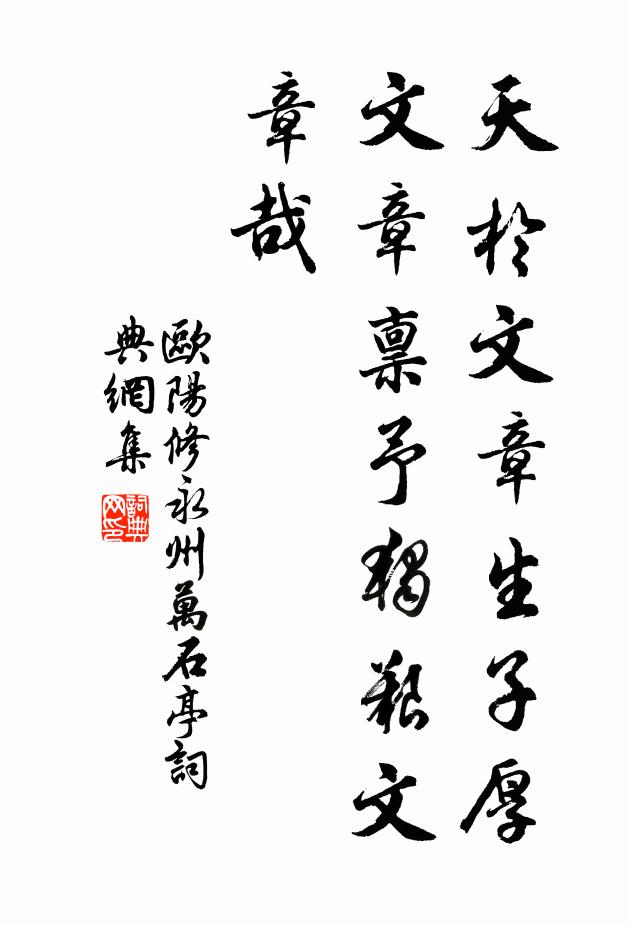 天於文章生子厚
文章禀予獨艱文
章哉
歐陽修永州萬石亭詞
典網集
詞典
网印